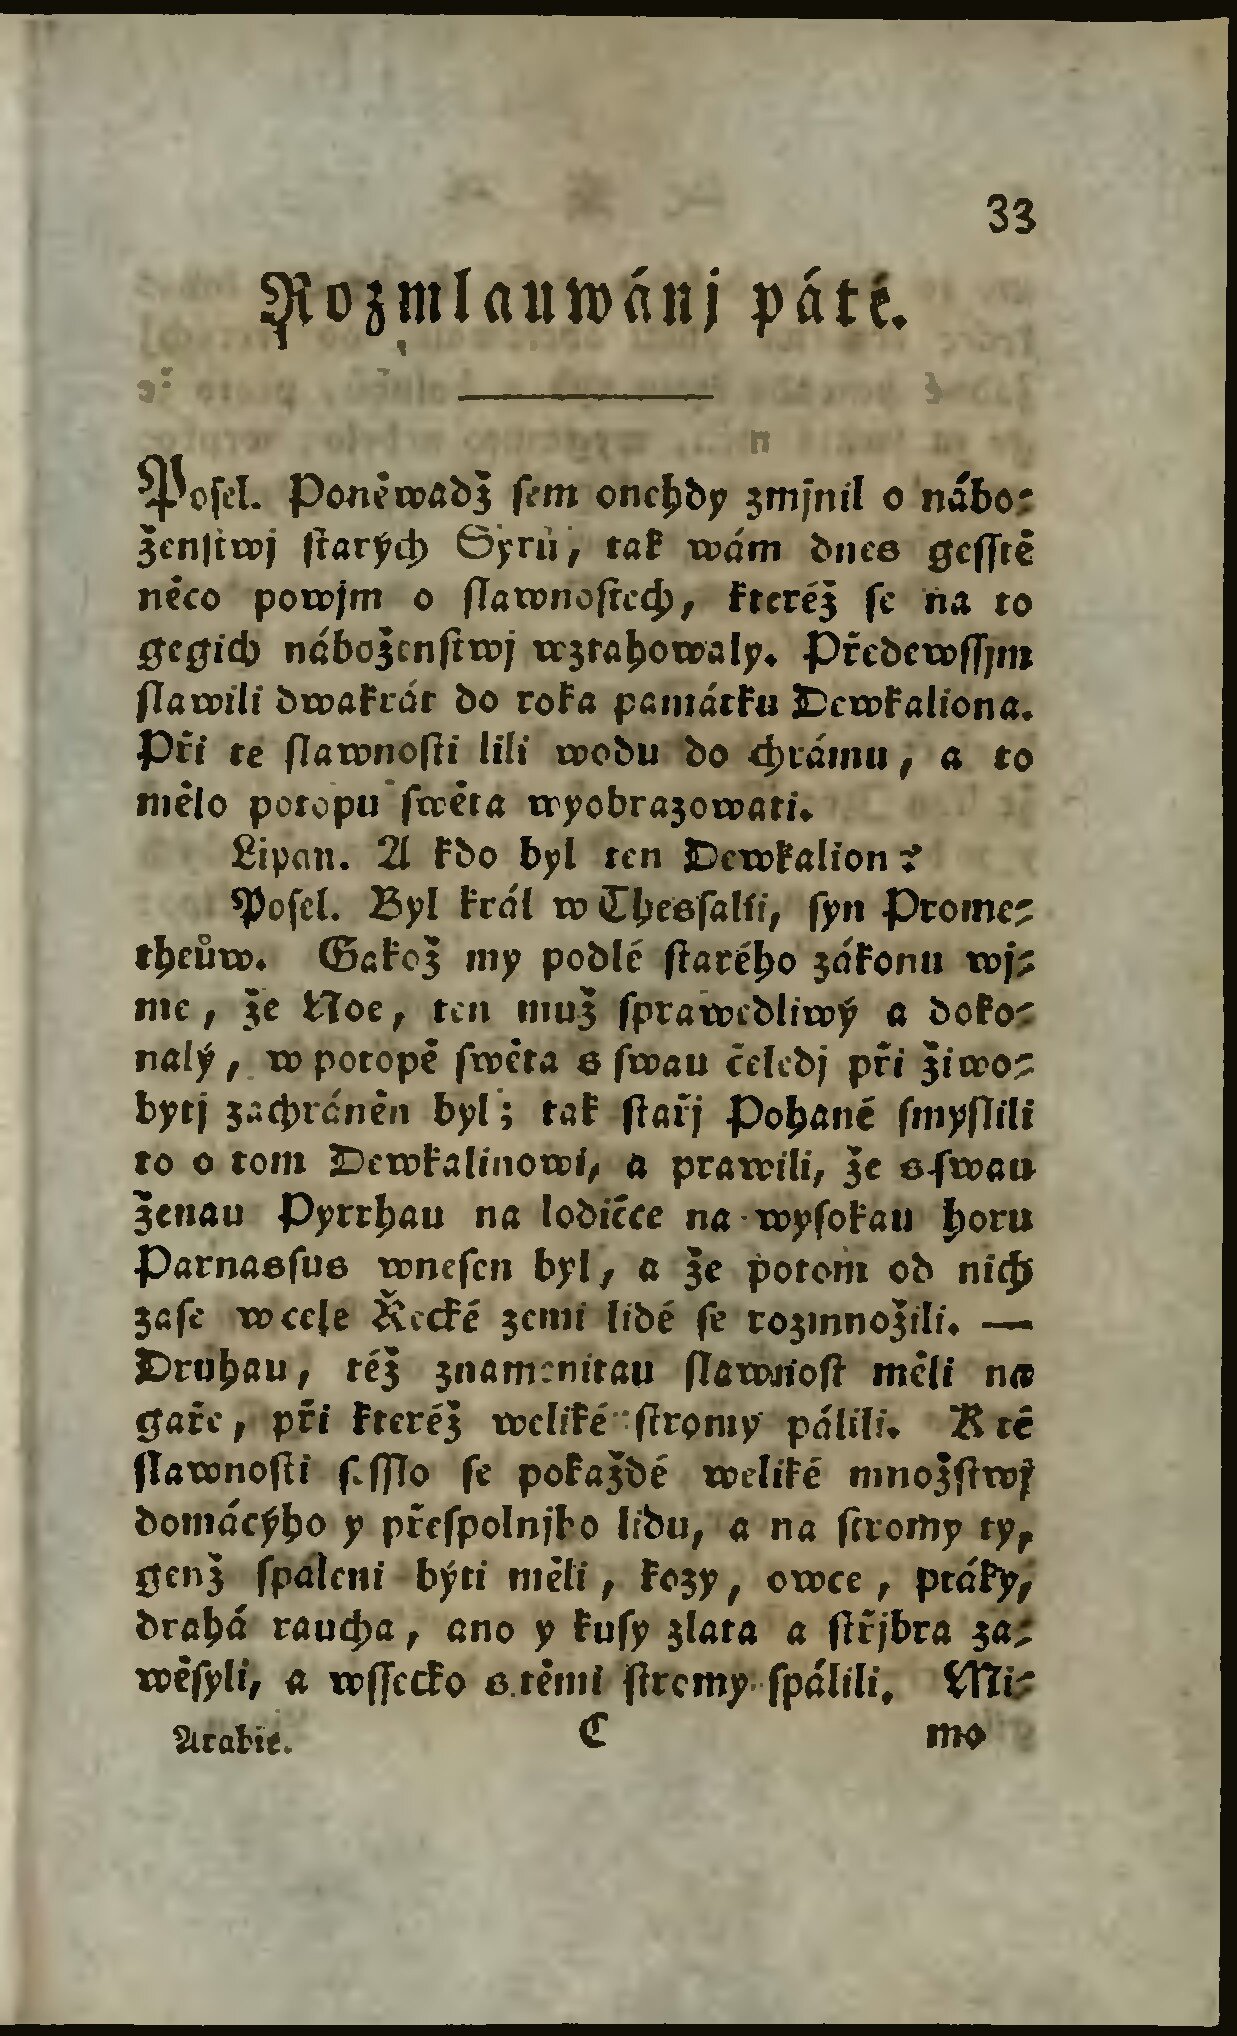 33
Rozmlauwánj páté.
Posel. Poněwadž sem onehdy zmjnil o nábo-
ženstwj starých Syrů, tak wám dnes gesstě
něco powjm o slawnostech, kteréž se na to
gegich náboženstwj wztahowaly. Předewssjm
slawili dwakrát do roka památku Dewkaliona.
Při té slawnosti lili wodu do chrámu, a to
mělo potopu swěta wyobrazowati.
Lipan. A kdo byl ten Dewkalion?
Posel. Byl král w Thessalii, syn Prome-
theůw. Gakož my podlé starého zákonu wj-
me, že Noe, ten muž sprawedliwý a doko-
nalý, w potopě swěta s swau čeledj při žiwo-
bytj zachráněn byl; tak stařj Pohané smyslili
to o tom Dewkalinowi, a prawili, že s swau
ženau Pyrrhau na lodičce na wysokau horu
Parnassus wnesen byl, a že potom od nich
zase w cele Řecké zemi lidé se rozmnožili. —
Druhau, též znamenitau slawnost měli na
gaře, při kteréž weliké stromy pálili. K té
slawnosti sesslo se pokaždé weliké množstwj
domácýho y přespolnjho lidu, a na stromy ty,
genž spaleni býti měli, kozy, owce, ptáky,
drahá raucha, ano y kusy zlata a střjbra za-
wěsyli, a wssecko s těmi stromy spálili. Mi-
Arabie. C mo